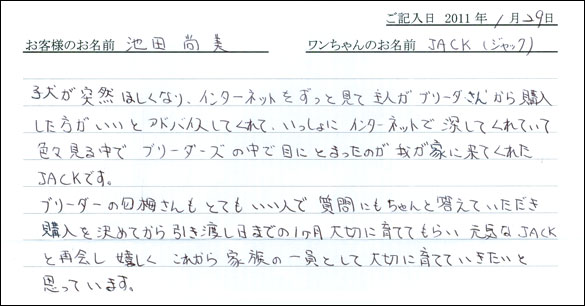 ご記入日 2011年 1月29日
お客様のお名前 池田 尚美 ワンちゃんのお名前 JACK (ジャック)
子犬が突然ほしくなり、インターネットをずっと見て主人がブリーダさんから購入
した方がいいとアドバイスしてくれて、いっしょにインターネットで探してくれていて
色々見る中でブリーダーズの中で目にとまったのが我が家に来てくれた
JACKです。
ブリーダーの 梅さんもとてもいい人で質問にもちゃんと答えていただき
購入を決めてから引き渡し日までの1ヶ月大切に育ててもらい元気なJACK
と再会し嬉しくこれから家族の一員として大切に育てていきたいと
思っています。